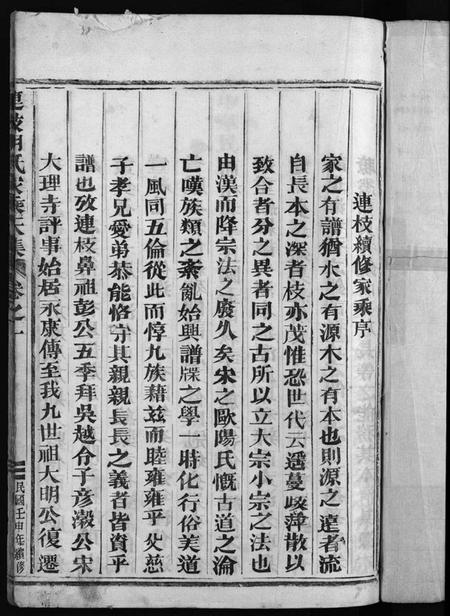 連枝續修家乘序
家之有譜猶水之有源木之有本也則源之遠者流
自長本之深者枝亦茂惟恐世代云遥蔓蔓萍散以
致合者分之異者同之古所以立大宗小宗之法也
由漢而降宗法之廢久矣宋之歐陽氏慨古道之淪
亡嘆族類之紊亂始興譜牒之學一時化行俗美道
一風同五倫從此而惇九族藉玆而睦雍雍乎父慈
子孝兄愛弟恭能恪守其親親長長之義者皆資乎
譜也攷連枝鼻祖彭公五季拜吳越令子彥澂公宋
大理寺評事始居永康傳至我九世祖大明公復遷
連枝胡氏家乘大集 卷之一
民國壬申年續修